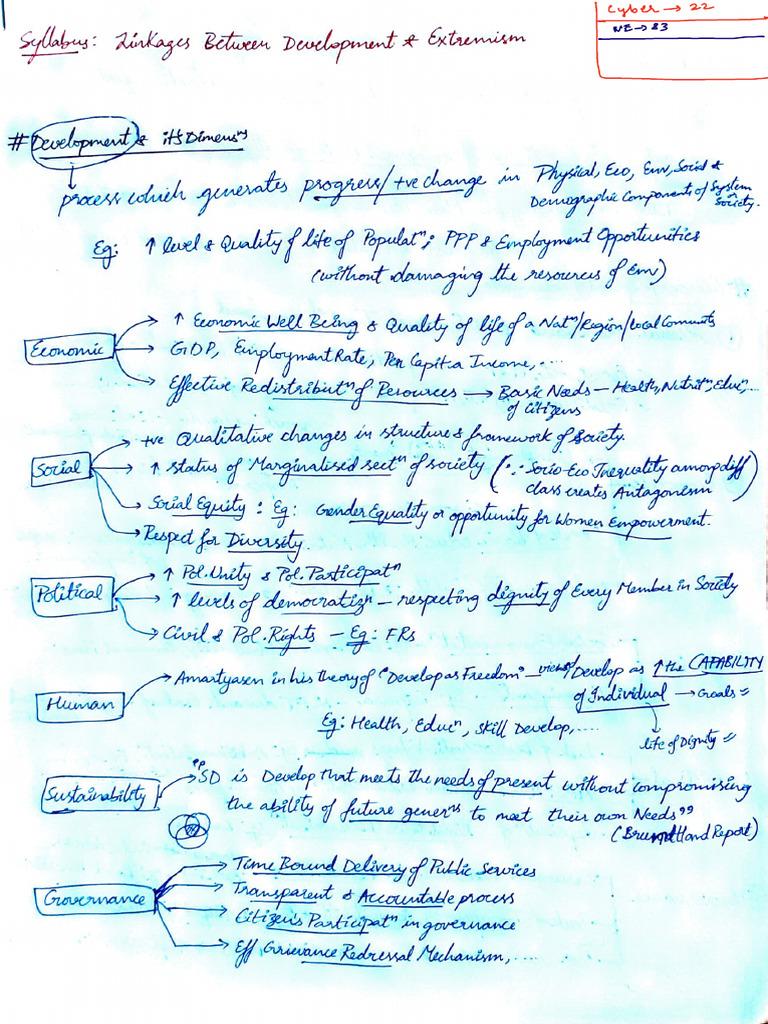 Cyber → 22
NE → 83
Syllabus: Linkages Between Development & Extremism
# Development & it's Dimensns
process which generates progress/+ve change in Physical, Eco, Env, Social &
Demographic Components of System
or Society.
Eg: ↑ level & Quality of life of Populatn; PPP & Employment Opportunities
(without damaging the resources of Env)
Economic
→ ↑ Economic Well Being & Quality of life of a Natn/Region/Local Community
→ GDP, Employment Rate, Per Capita Income,...
→ Effective Redistributn of Resources → Basic Needs – Health, Nutritn, Educn,...
of Citizens
Social
→ +ve Qualitative changes in structure & framework of Society.
→ ↑ status of Marginalised sectn of society (∵ Socio-Eco Inequality among diff
class creates Antagonism)
→ Social Equity : Eg: Gender Equality or opportunity for Women Empowerment.
→ Respect for Diversity
Political
→ ↑ Pol. Unity & Pol. Participatn
→ ↑ levels of democratizn – respecting dignity of Every Member in Society
→ Civil & Pol. Rights – Eg: FRs
Human
→ Amartyasen in his theory of "Develop as Freedom" – views Develop as ↑ the CAPABILITY
of Individual → Goals
Eg: Health, Educn, Skill Develop,....
life of Dignity
Sustainability
→ "SD is Develop that meets the needs of present without compromising
the ability of future generns to meet their own Needs"
(Brundtland Report)
Governance
→ Time Bound Delivery of Public Services
→ Transparent & Accountable process
→ Citizen's Participatn in governance
→ Eff Grievance Redressal Mechanism,....